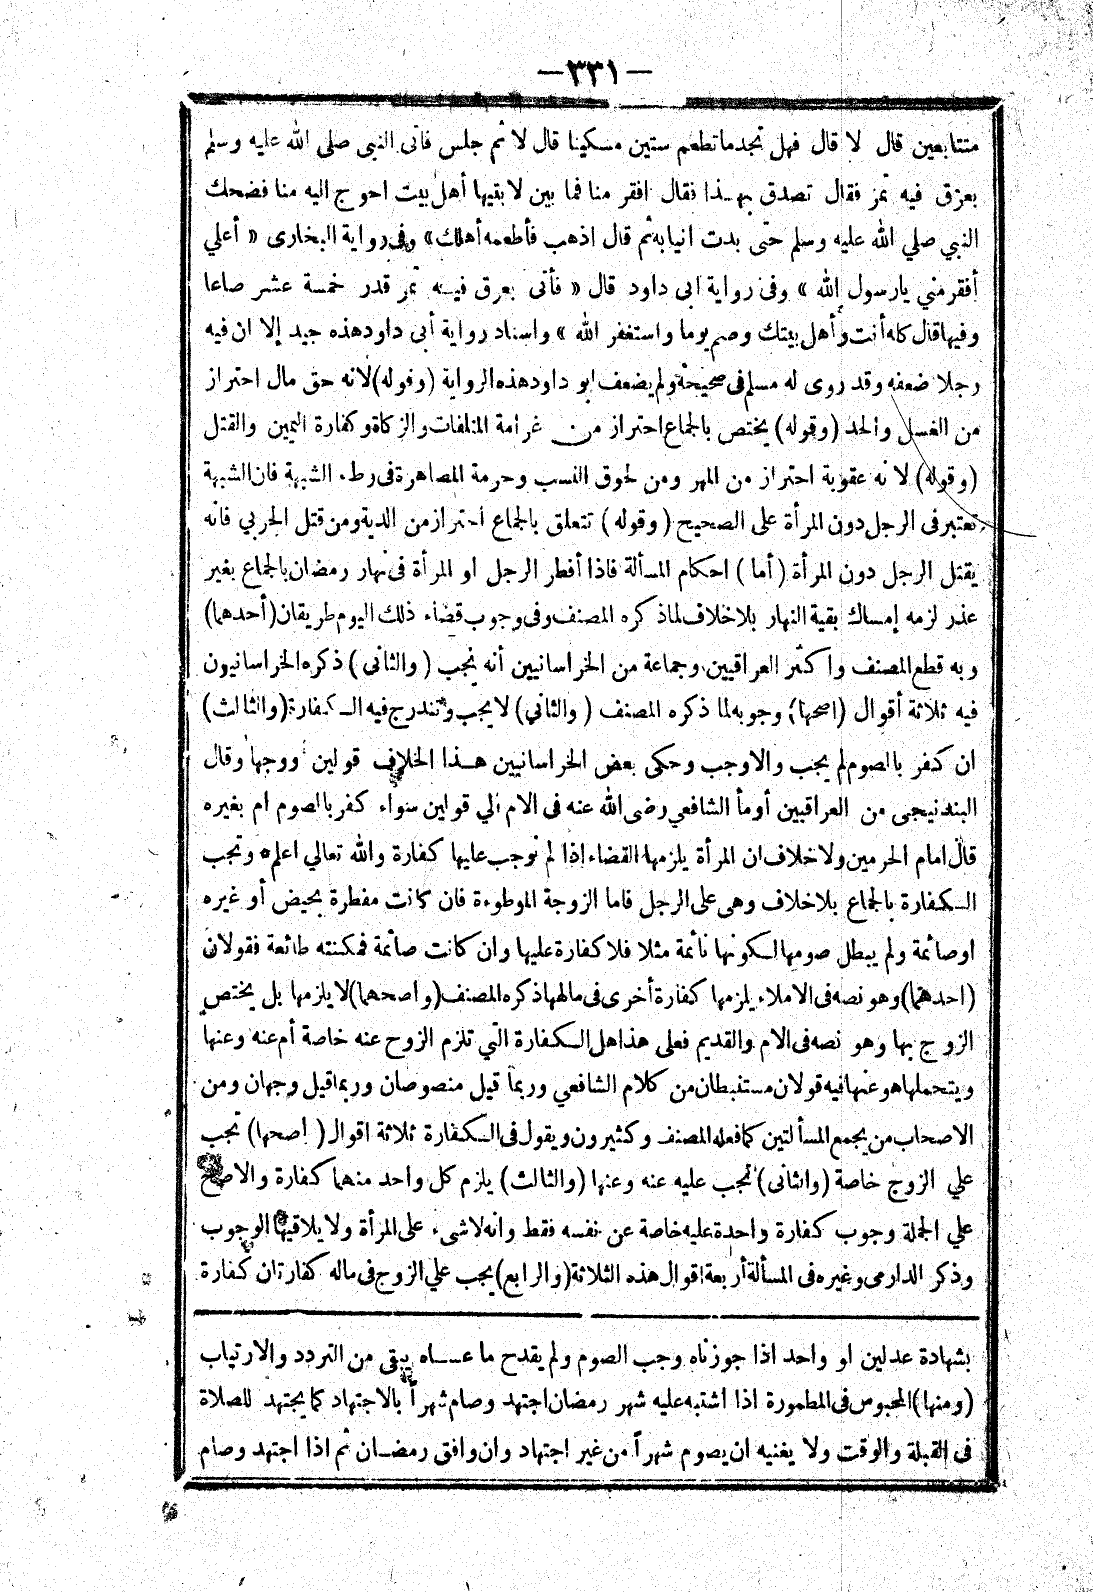 — ٣٣١ —
متتابعين قال لا قال فهل تجدما تطعم ستين مسكينا قال لا ثم جلس فأتى النبى صلى الله عليه وسلم
بعرق فيه تمر فقال تصدق بهذا فقال افقر منا فما بين لابتيها أهل بيت احوج اليه منا فضحك
النبي صلي الله عليه وسلم حتى بدت انيابه ثم قال اذهب فأطعمه أهلك» وفى رواية البخارى « أعلي
أفقر مني يارسول الله » وفى رواية ابى داود قال « فأتى بعرق فيه تمر قدر خمسة عشر صاعا
وفيها قال كله أنت وأهل بيتك وصم يوما واستغفر الله » واسناد رواية أبى داود هذه جيد إلا ان فيه
رجلا ضعفه وقد روى له مسلم فى صحيحه ولم يضعف ابو داود هذه الرواية (وقوله) لانه حق مال احتراز
من الغسل والحد (وقوله) يختص بالجماع احتراز من غرامة المتلفات والزكاة وكفارة اليمين والقتل
(وقوله) لانه عقوبة احتراز من المهر ومن لحوق النسب وحرمة المصاهرة فى وطء الشبهة فان الشبهة
تعتبر فى الرجل دون المرأة على الصحيح (وقوله) تتعلق بالجماع احتراز من الدية ومن قتل الحربي فانه
يقتل الرجل دون المرأة (أما) احكام المسألة فاذا أفطر الرجل او المرأة فى نهار رمضان بالجماع بغير
عذر لزمه إمساك بقية النهار بلاخلاف لماذكره المصنف وفى وجوب قضاء ذلك اليوم طريقان (أحدهما)
وبه قطع المصنف واكثر العراقيين وجماعة من الخراسانيين أنه يجب (والثانى) ذكره الخراسانيون
فيه ثلاثة أقوال (اصحها) وجوبه لما ذكره المصنف (والثاني) لا يجب وتندرج فيه الكفارة (والثالث)
ان كفر بالصوم لم يجب والا وجب وحكى بعض الخراسانيين هذا الخلاف قولين ووجها وقال
البندنيجى من العراقيين أومأ الشافعي رضى الله عنه فى الام الي قولين سواء كفر بالصوم ام بغيره
قال امام الحرمين ولاخلاف ان المرأة يلزمها القضاء إذا لم نوجب عليها كفارة والله تعالي اعلم * وتجب
الكفارة بالجماع بلاخلاف وهى على الرجل فاما الزوجة الموطوءة فان كانت مفطرة بحيض أو غيره
اوصائمة ولم يبطل صومها لكونها نائمة مثلا فلا كفارة عليها وان كانت صائمة فمكنته طائعة فقولان
(احدهما) وهو نصه فى الاملاء يلزمها كفارة أخرى فى مالها ذكره المصنف (واصحهما) لا يلزمها بل يختص
الزوج بها وهو نصه فى الام والقديم فعلى هذا هل الكفارة التي تلزم الزوج عنه خاصة أم عنه وعنها
ويتحملها هو عنها فيه قولان مستنبطان من كلام الشافعي وربما قيل منصوصان وربما قيل وجهان ومن
الاصحاب من يجمع المسألتين كما فعله المصنف وكثيرون ويقول فى الكفارة ثلاثة اقوال (أصحها) تجب
علي الزوج خاصة (والثانى) تجب عليه عنه وعنها (والثالث) يلزم كل واحد منهما كفارة والاصح
علي الجملة وجوب كفارة واحدة عليه خاصة عن نفسه فقط وانه لاشىء على المرأة ولا يلاقيها الوجوب
وذكر الدارمى وغيره فى المسألة أربعة اقوال هذه الثلاثة (والرابع) يجب علي الزوج فى ماله كفارتان كفارة
بشهادة عدلين او واحد اذا جوزناه وجب الصوم ولم يقدح ما عساه يبقى من التردد والارتياب
(ومنها) المحبوس فى المطمورة اذا اشتبه عليه شهر رمضان اجتهد وصام شهراً بالاجتهاد كما يجتهد للصلاة
فى القبلة والوقت ولا يغنيه ان يصوم شهراً من غير اجتهاد وان وافق رمضان ثم اذا اجتهد وصام